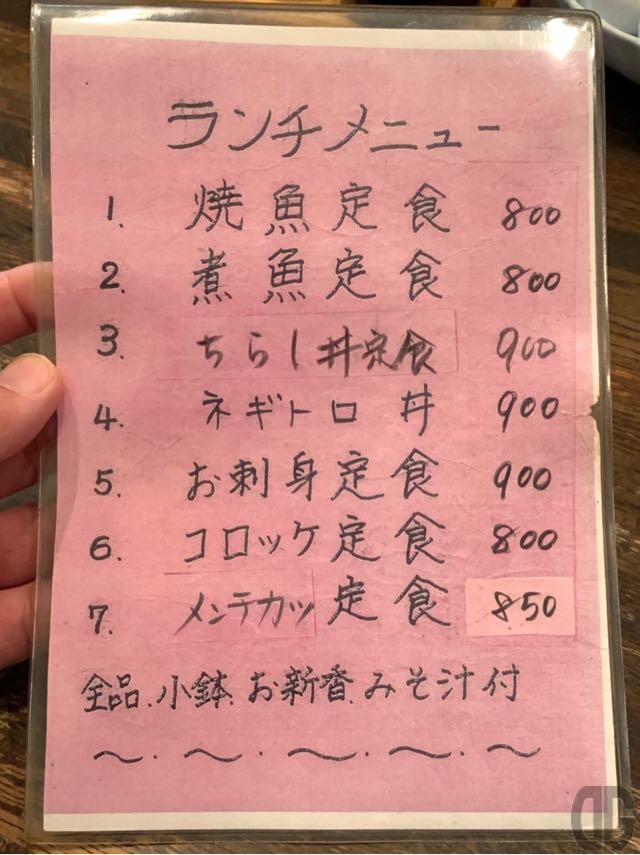 ランチメニュー
1. 焼魚定食 800
2. 煮魚定食 800
3. ちらし丼定食 900
4. ネギトロ丼 900
5. お刺身定食 900
6. コロッケ定食 800
7. メンテカツ定食 850
全品、小鉢、お新香、みそ汁付